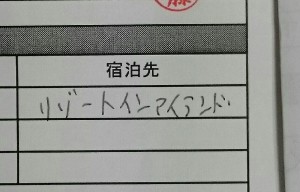 藤
宿泊先
リゾートインアイランド